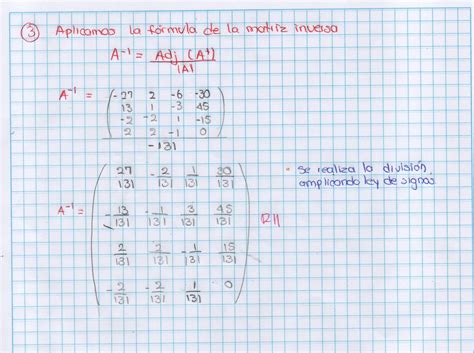 ③ Aplicamos la fórmula de la matriz inversa
A⁻¹ = Adj (Aᵗ)
|A|
A⁻¹ =
-27 2 -6 -30
13 1 -3 45
-2 -2 1 -15
2 2 -1 0
-131
A⁻¹ =
27/131 -2/131 1/131 30/131
-13/131 -1/131 3/131 45/131 R//
2/131 2/131 -1/131 15/131
-2/131 -2/131 1/131 0
• Se realiza la división,
amplicando ley de signos